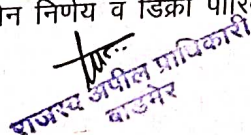 न निर्णय व डिक्री पारि
राजस्व अपील प्राधिकारी
बाडमेर